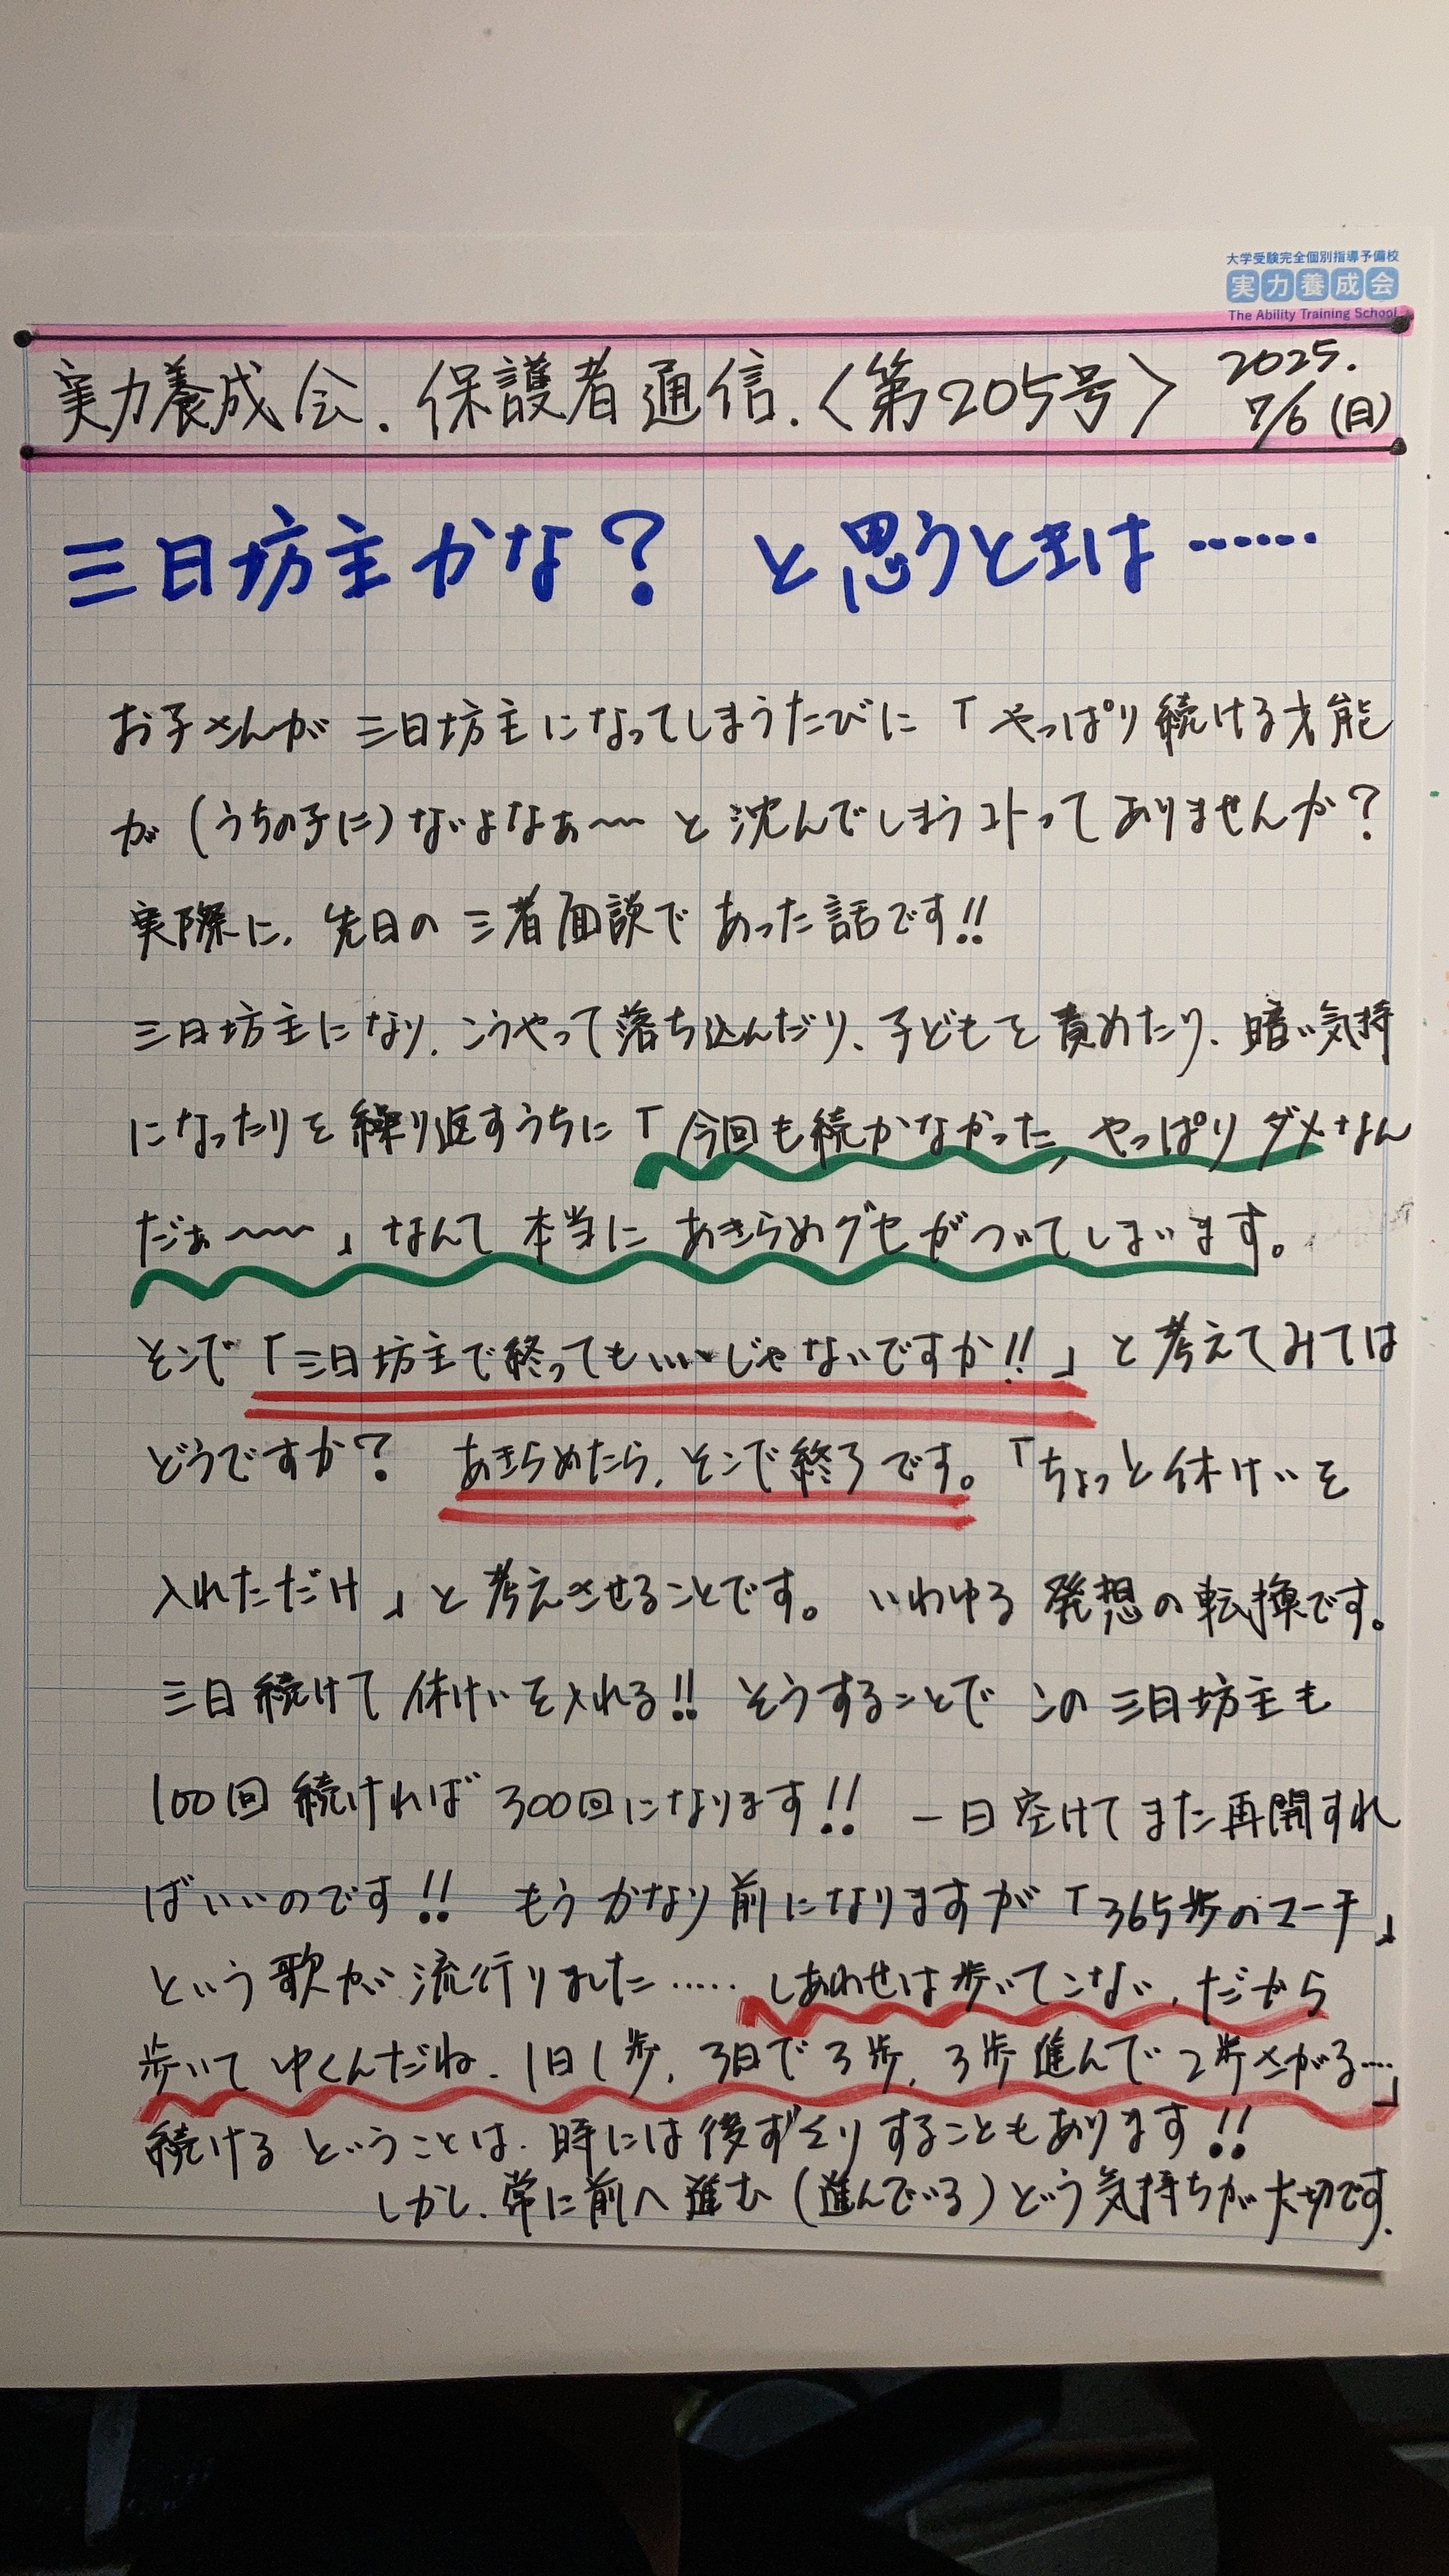 大学受験完全個別指導予備校
実力養成会
The Ability Training School
実力養成会.保護者通信.〈第205号〉 2025.
7/6(日)
三日坊主かな? と思うときは……
お子さんが三日坊主になってしまうたびに「やっぱり続ける才能
が(うちの子に)ないよなぁ〜〜と沈んでしまうコトってありませんか?
実際に、先日の三者面談であった話です!!
三日坊主になり、こうやって落ち込んだり、子どもを責めたり、暗い気持
になったりを繰り返すうちに「今回も続かなかった、やっぱりダメなん
だぁ〜〜〜」なんて本当にあきらめグセがついてしまいます。
そこで「三日坊主で終ってもいいじゃないですか!!」と考えてみては
どうですか? あきらめたら、そこで終了です。「ちょっと休けいを
入れただけ」と考えさせることです。いわゆる発想の転換です。
三日続けて休けいを入れる!! そうすることでこの三日坊主も
100回続ければ300回になります!! 一日空けてまた再開すれ
ばいいのです!! もうかなり前になりますが「365歩のマーチ」
という歌が流行りました……しあわせは歩いてこない、だから
歩いてゆくんだね、1日1歩、3日で3歩、3歩進んで2歩さがる…」
続けるということは、時には後ずさりすることもあります!!
しかし、常に前へ進む(進んでいる)どう気持ちが大切です.